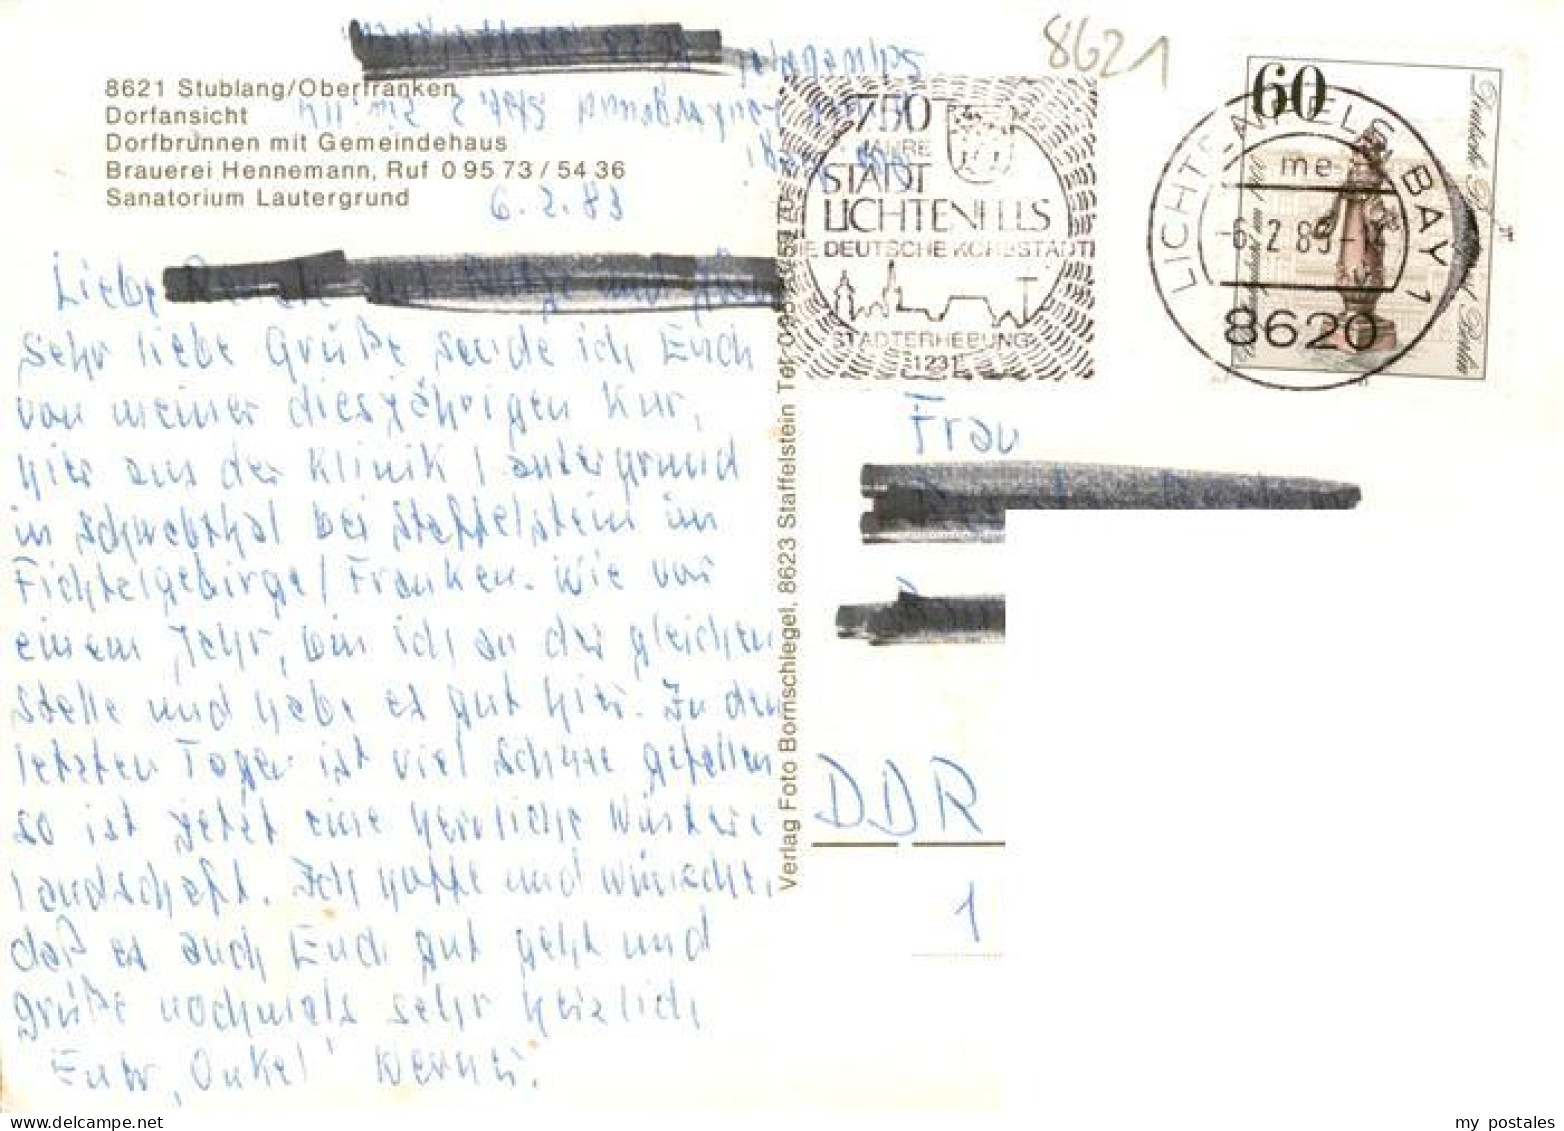 8621
8621 Stublang/Oberfranken
Dorfansicht
Dorfbrunnen mit Gemeindehaus
Brauerei Hennemann, Ruf 0 95 73 / 54 36
Sanatorium Lautergrund
6.2.83
Liebe
Sehr liebe Grüße sende ich Euch
von meiner diesjährigen Kur,
hier aus der Klinik Lautergrund
in Schwabthal bei Staffelstein im
Fichtelgebirge/Franken. Wie vor
einem Jahr, bin ich an der gleichen
Stelle und habe es gut hier. In den
letzten Tagen ist viel Schnee gefallen
so ist jetzt eine herrliche Winter-
landschaft. Ich hoffe und wünsche,
daß es auch Euch gut geht und
grüße nochmals sehr herzlich
Euer "Onkel" Werner.
Verlag Foto Bornschlegel, 8623 Staffelstein Tel.
750
JAHRE
STADT
LICHTENFELS
DIE DEUTSCHE KORBSTADT
STADTERHEBUNG
1231
60
Deutsche Bundespost Berlin
LICHTENFELS, BAY 1
me
-6.2.83-
8620
Frau
DDR
1
my postales